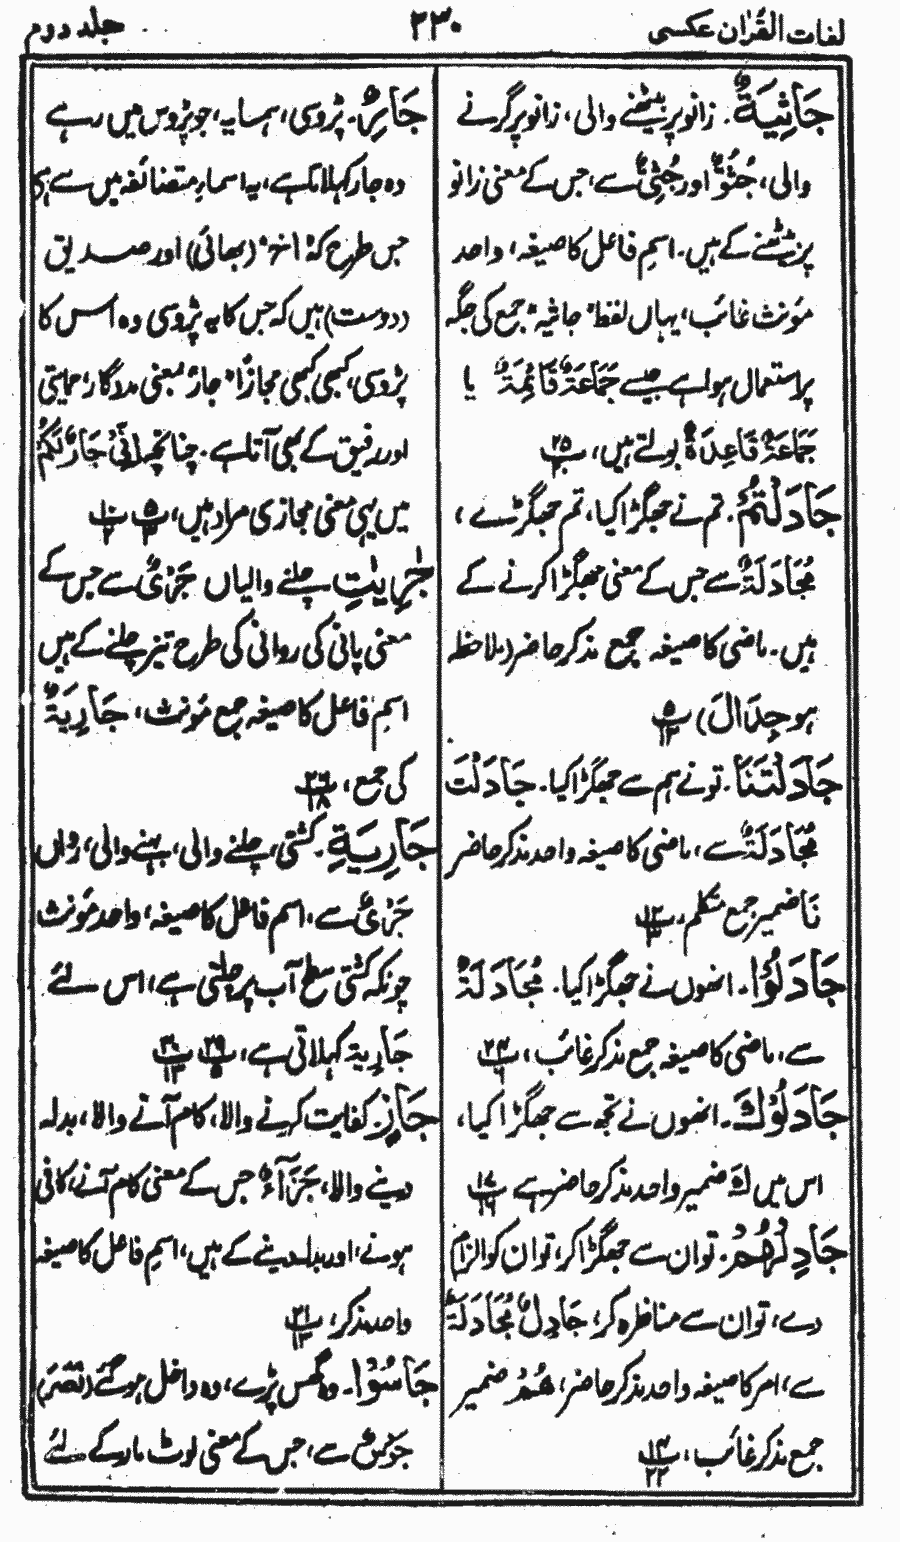 لغات القرآن عکسی
۲۳۰
جلد دوم
جَاثِیَةً۔ زانو پر بیٹھنے والی، زانو پر گرنے
والی، جُثُوٌّ اور جُثِیٌّ سے، جس کے معنی زانو
پر بیٹھنے کے ہیں۔ اسمِ فاعل کا صیغہ، واحد
مؤنث غائب، یہاں لفظ جاثیہ جمع کی جگہ
پر استعمال ہوا ہے جیسے جَمَاعَةٌ قَائِمَةٌ یا
جَمَاعَةٌ قَاعِدَةٌ بولتے ہیں، پ ۲۵
جَادَلْتُمْ۔ تم نے جھگڑا کیا، تم جھگڑے،
مُجَادَلَةٌ سے جس کے معنی جھگڑا کرنے کے
ہیں۔ ماضی کا صیغہ جمع مذکر حاضر (ملاحظہ
ہو جِدَال) پ ۵ ۱۳
جَادَلْتَنَا۔ تو نے ہم سے جھگڑا کیا۔ جَادَلْتَ
مُجَادَلَةٌ سے، ماضی کا صیغہ واحد مذکر حاضر
نَا ضمیر جمع متکلم۔ پ ۱۲ ۳
جَادَلُوْا۔ انھوں نے جھگڑا کیا۔ مُجَادَلَةٌ
سے، ماضی کا صیغہ جمع مذکر غائب، پ ۲۴ ۶
جَادَلُوْكَ۔ انھوں نے تجھ سے جھگڑا کیا،
اس میں كَ ضمیر واحد مذکر حاضر ہے پ ۱۷ ۱۶
جَادِلْهُمْ۔ تو ان سے جھگڑا کر، تو ان کو الزام
دے، تو ان سے مناظرہ کر، جَادِلْ مُجَادَلَةٌ
سے، امر کا صیغہ واحد مذکر حاضر، هُمْ ضمیر
جمع مذکر غائب، پ ۱۴ ۲۲
جَارٌ۔ پڑوسی، ہمسایہ، جو پڑوس میں رہے
وہ جار کہلائیگے، یہ اسماءِ متضائفہ میں سے ہے
جس طرح کہ اخ (بھائی) اور صدیق
(دوست) ہیں کہ جس کا یہ پڑوسی وہ اس کا
پڑوسی، کبھی کبھی مجازاً جار بمعنی مددگار، حمایتی
اور رفیق کے بھی آتا ہے۔ چنانچہ اِنِّیْ جَارٌ لَّکُمْ
میں یہی معنی مجازی مراد ہیں، پ ۵ ۳ پ ۱۰ ۲
جٰرِیٰتِ چلنے والیاں جَرْیٌ سے جس کے
معنی پانی کی روانی کی طرح تیز چلنے کے ہیں
اسمِ فاعل کا صیغہ جمع مؤنث، جَارِیَةٌ
کی جمع، پ ۲۶ ۱۸
جَارِیَةٍ۔ کشتی، چلنے والی، بہنے والی، رواں
جَرْیٌ سے، اسم فاعل کا صیغہ، واحد مؤنث
چونکہ کشتی سطح آب پر چلتی ہے، اس لئے
جَارِیَة کہلاتی ہے، پ ۲۹ ۵ پ ۳۰ ۱۳
جَازٍ۔ کفایت کرنے والا، کام آنے والا، بدلہ
دینے والا، جَزَآءٌ جس کے معنی کام آنے، کافی
ہونے، اور بدلہ دینے کے ہیں، اسمِ فاعل کا صیغہ
واحد مذکر، پ ۲۱ ۱۳
جَاسُوْا۔ وہ گھس پڑے، وہ داخل ہوگئے (نَصَرَ)
جَوْسٌ سے، جس کے معنی لوٹ مار کے لئے